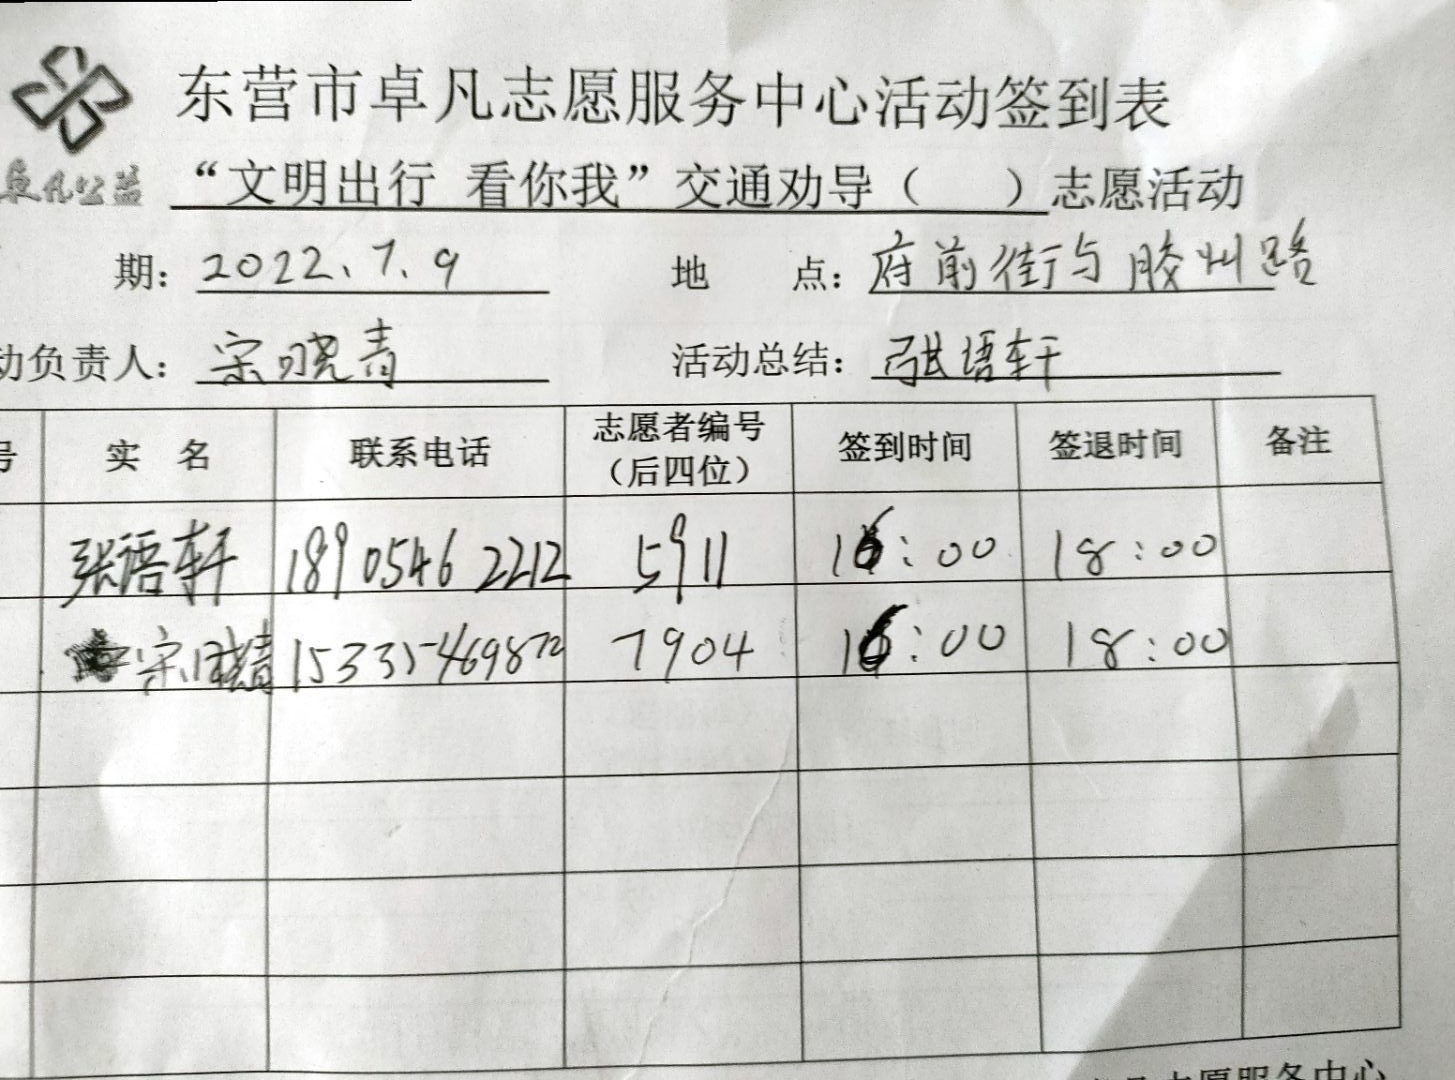 东营市卓凡志愿服务中心活动签到表
卓凡公益
“文明出行 看你我”交通劝导（ ）志愿活动
期：2022.7.9 地 点：府前街与胶州路
动负责人：宋晓青 活动总结：张语轩
号 实 名 联系电话 志愿者编号（后四位） 签到时间 签退时间 备注
张语轩 18905462212 5911 16:00 18:00
宋晓青 15335469872 7904 16:00 18:00
志愿服务中心